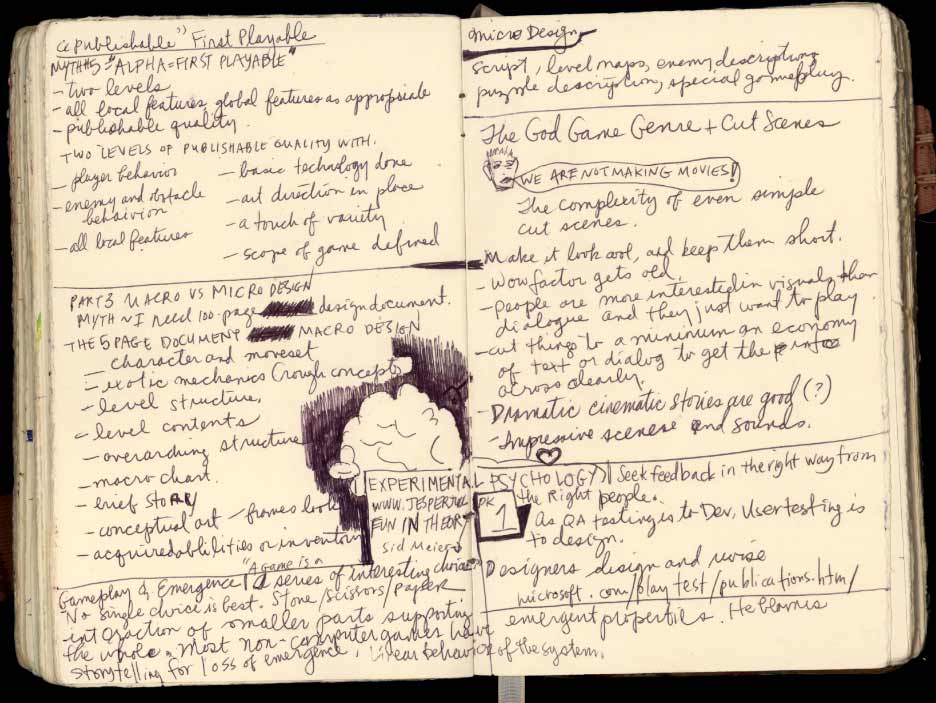 "publishable" First Playable
MYTH #5 "ALPHA=FIRST PLAYABLE"
- two levels
- all local features, global features as appropriate
- publishable quality.
TWO LEVELS OF PUBLISHABLE QUALITY WITH.
- player behavior
- enemy and obstacle
behaivion
- all local features
- basic technology done
- art direction in place
- a touch of variety
- scope of game defined
PART 3 MACRO VS MICRO DESIGN
MYTH ~ I need 100-page design document.
THE 5 PAGE DOCUMENT MACRO DESIGN
- character and moveset
- exotic mechanics (rough concepts
- level structure
- level contents
- overarching structure
- macro chart.
- brief story
- conceptual art - frames look
- acquired abilities or inventory
EXPERIMENTAL PSYCHOLOGY
WWW.JESPERJUUL.DK
FUN IN THEORY
Sid Meier
1
Gameplay & Emergence "A game is a series of interesting choices
No single choice is best. Stone/Scissors/Paper
interaction of smaller parts supporting emergent properties. He blames
the whole. Most non-computer games have linear behavior of the system.
storytelling for loss of emergence.
micro Design
script, level maps, enemy descriptions
puzzle description, special gameplay.
The God Game Genre + Cut Scenes
WE ARE NOT MAKING MOVIES!
The complexity of even simple
cut scenes.
Make it look cool, and keep them short.
- Wow factor gets old.
- people are more interested in visuals than
dialogue and they just want to play
- cut things to a minimum an economy
of text or dialog to get the info
across clearly.
- Dramatic cinematic stories are good (?)
- Impressive scenese and sounds.
Seek feedback in the right way from
the right people.
As QA testing is to Dev, User testing is
to design.
Designers design and revise
microsoft.com/playtest/publications.htm/